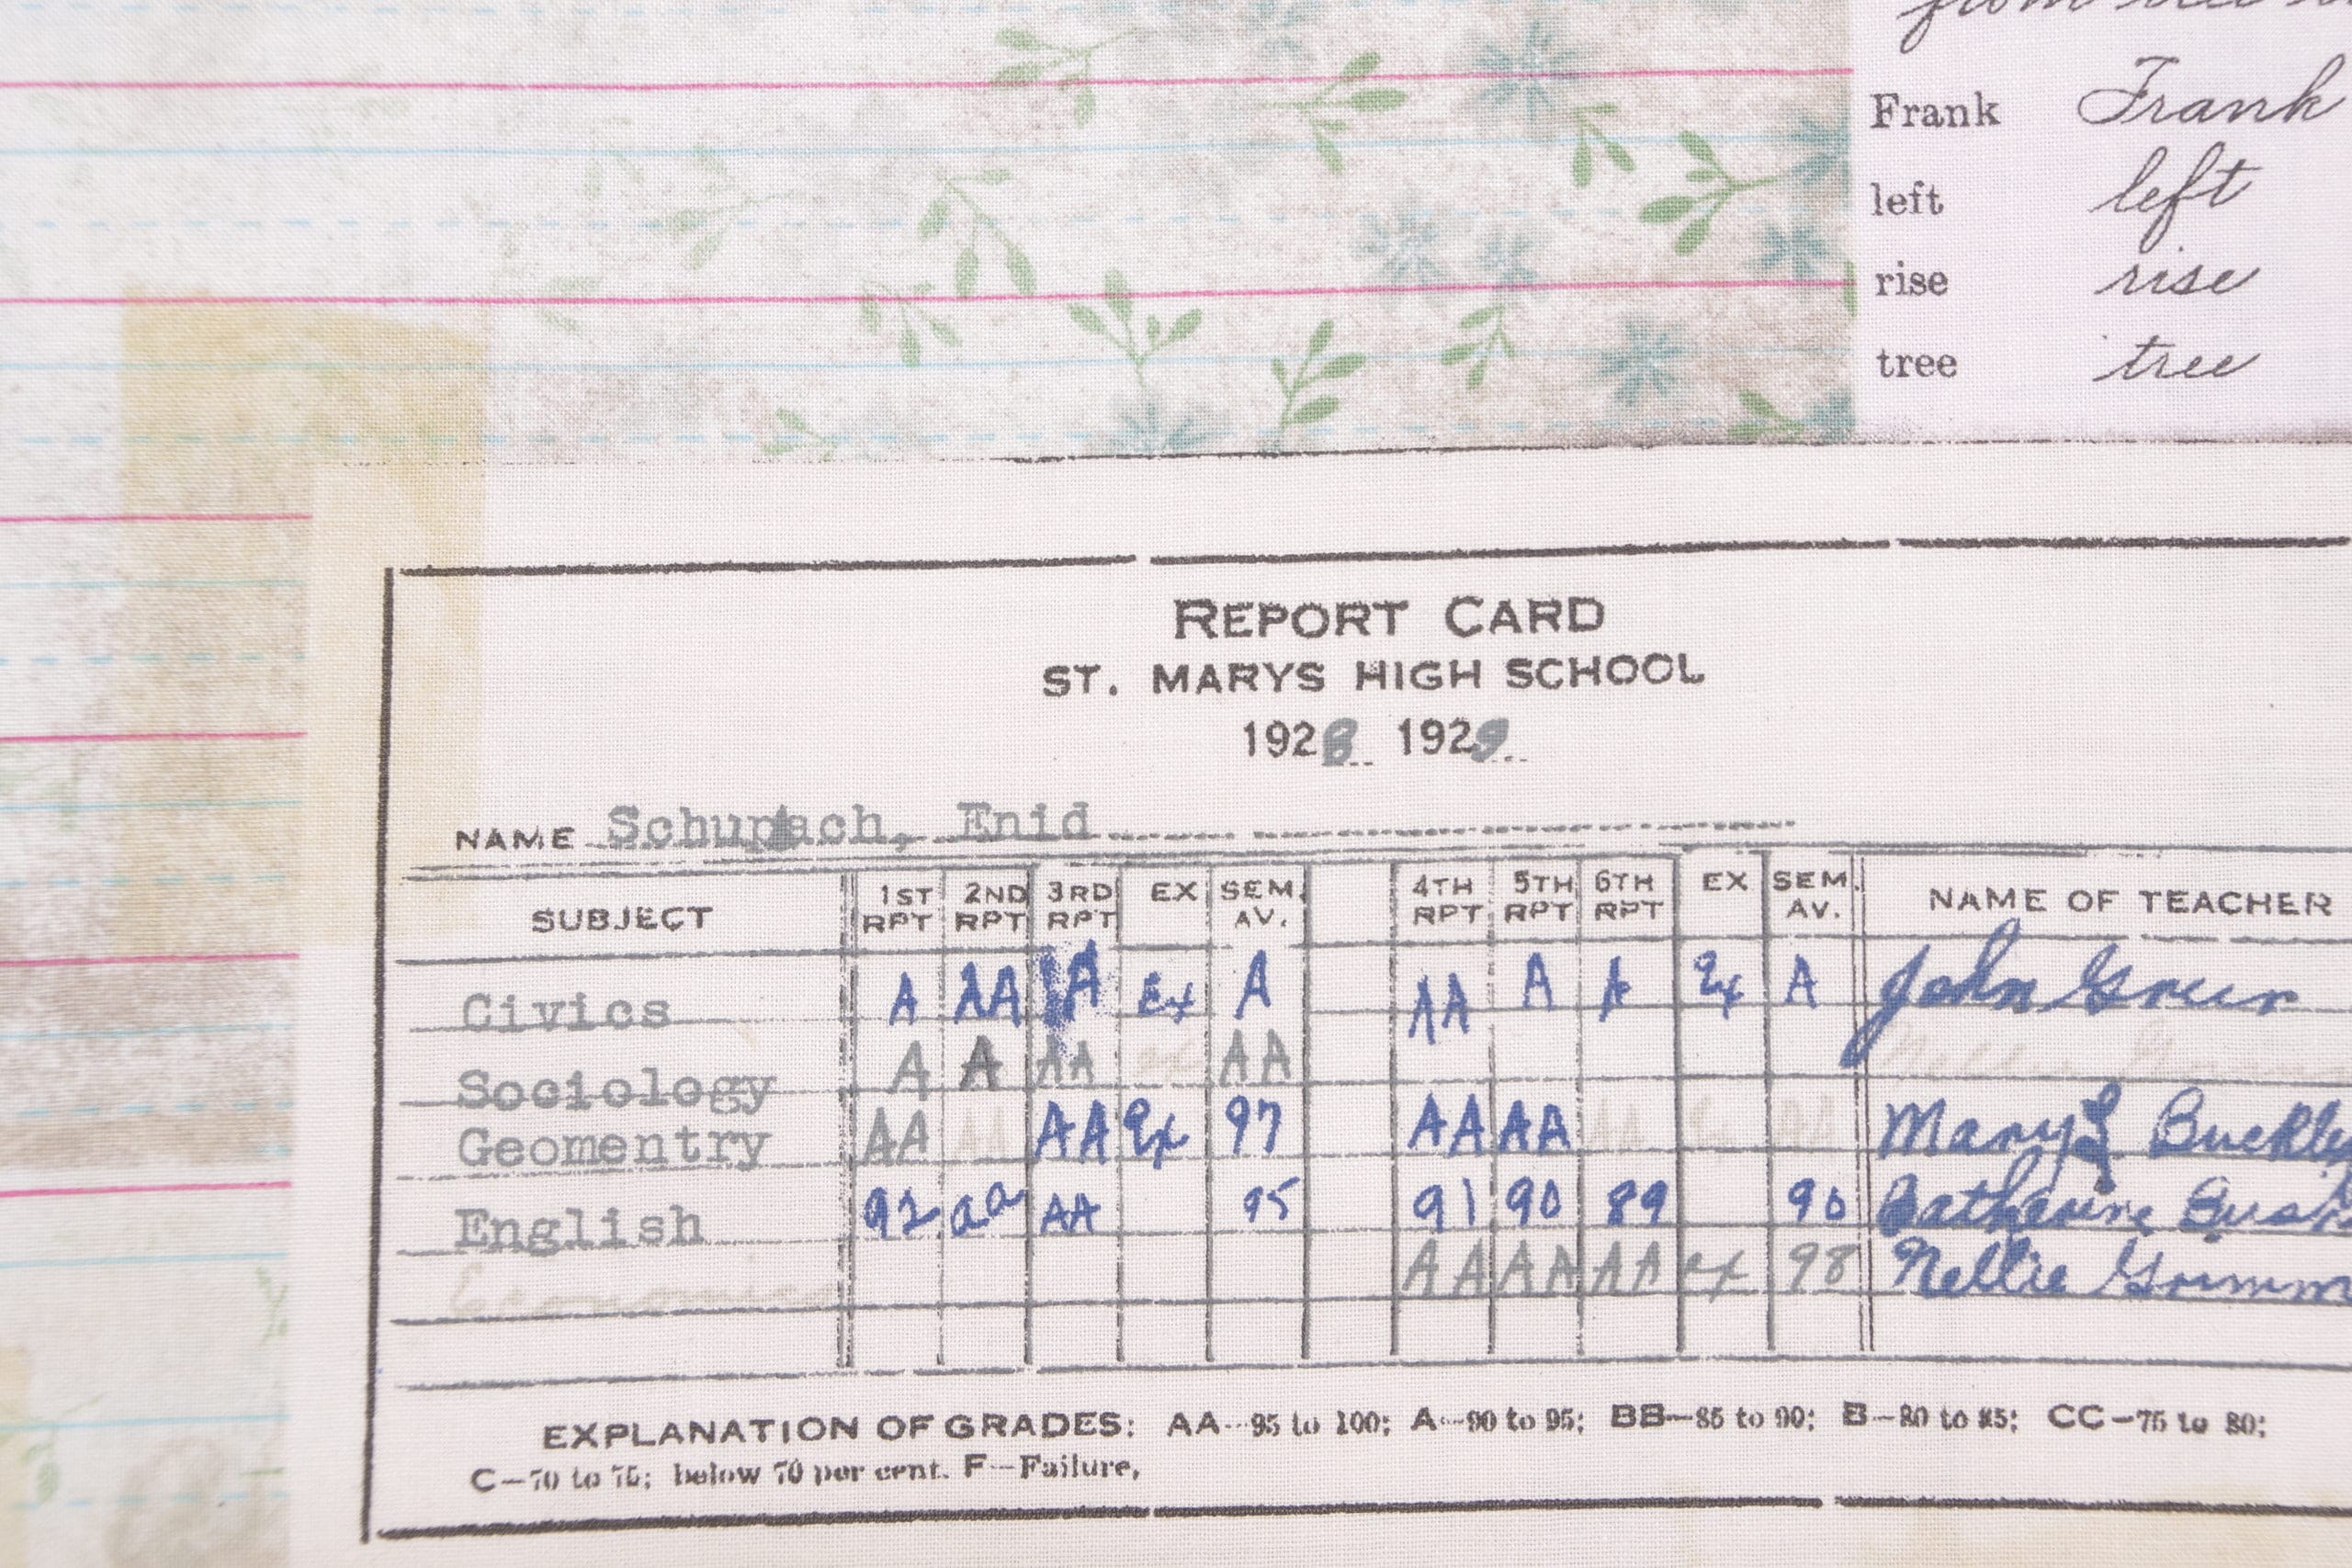 Frank Frank
left left
rise rise
tree tree
REPORT CARD
ST. MARYS HIGH SCHOOL
1928 1929
NAME Schupach, Enid
SUBJECT 1ST RPT 2ND RPT 3RD RPT EX SEM. AV. 4TH RPT 5TH RPT 6TH RPT EX SEM. AV. NAME OF TEACHER
Civics A AA A Ex A AA A A Ex A John Greer
Sociology A A AA ex AA Nellie
Geomentry AA AA AA Ex 97 AA AA AA Ex AA Mary L Buckley
English 92 aa AA 95 91 90 89 90 Catherine
Economics AA AA AA ex 98 Nellie Grimm
EXPLANATION OF GRADES: AA--95 to 100; A--90 to 95; BB--85 to 90; B--80 to 85; CC--75 to 80;
C--70 to 75; below 70 per cent. F--Failure,